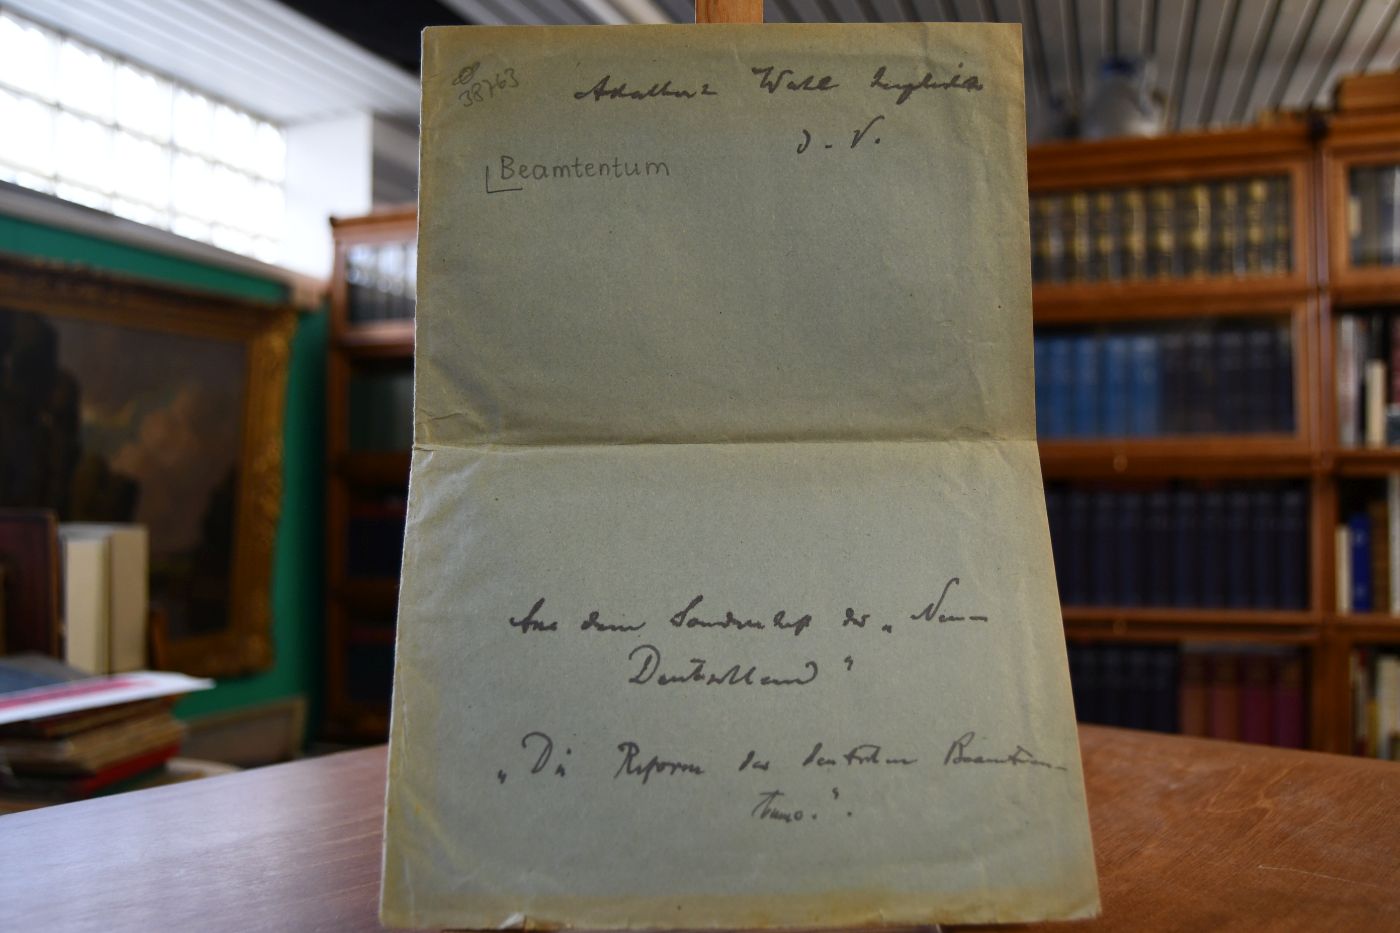 38763
Adalbert Wahl
d. V.
Beamtentum
Aus dem Sonderheft der „Neu-
Deutschland“
„Die Reform des deutschen Beamten-
tums.“.